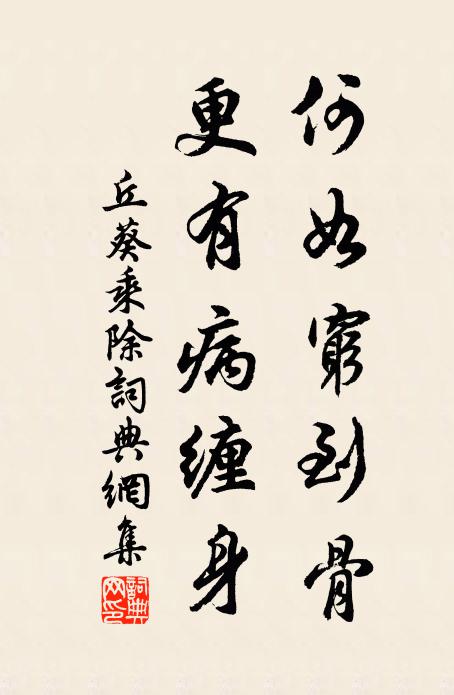 何如窮到骨
更有病纏身
丘葵乘除詞典網集
詞典網印